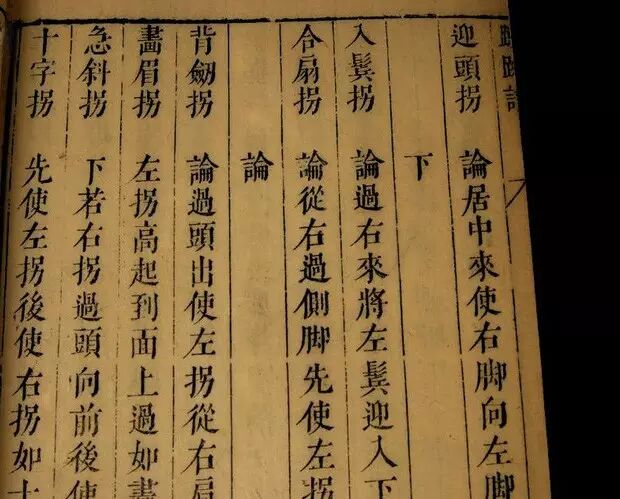 迎頭拐 論居中來使右脚向左脚
下
入鬂拐 論過右來將左鬂迎入下
合扇拐 論從右過側脚先使左拐
論
背劒拐 論過頭出使左拐從右肩
畵眉拐 左拐高起到面上過如畵
急斜拐 下若右拐過頭向前後使
十字拐 先使左拐後使右拐如十